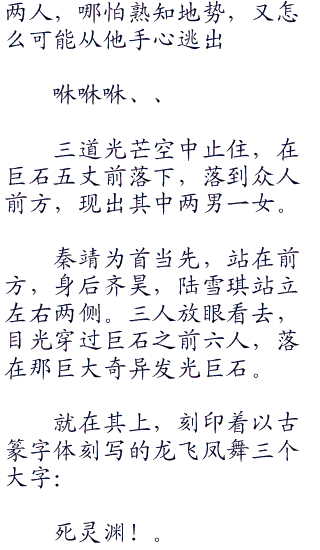 两人，哪怕熟知地势，又怎
么可能从他手心逃出
咻咻咻、、
三道光芒空中止住，在
巨石五丈前落下，落到众人
前方，现出其中两男一女。
秦靖为首当先，站在前
方，身后齐昊，陆雪琪站立
左右两侧。三人放眼看去，
目光穿过巨石之前六人，落
在那巨大奇异发光巨石。
就在其上，刻印着以古
篆字体刻写的龙飞凤舞三个
大字：
死灵渊！。